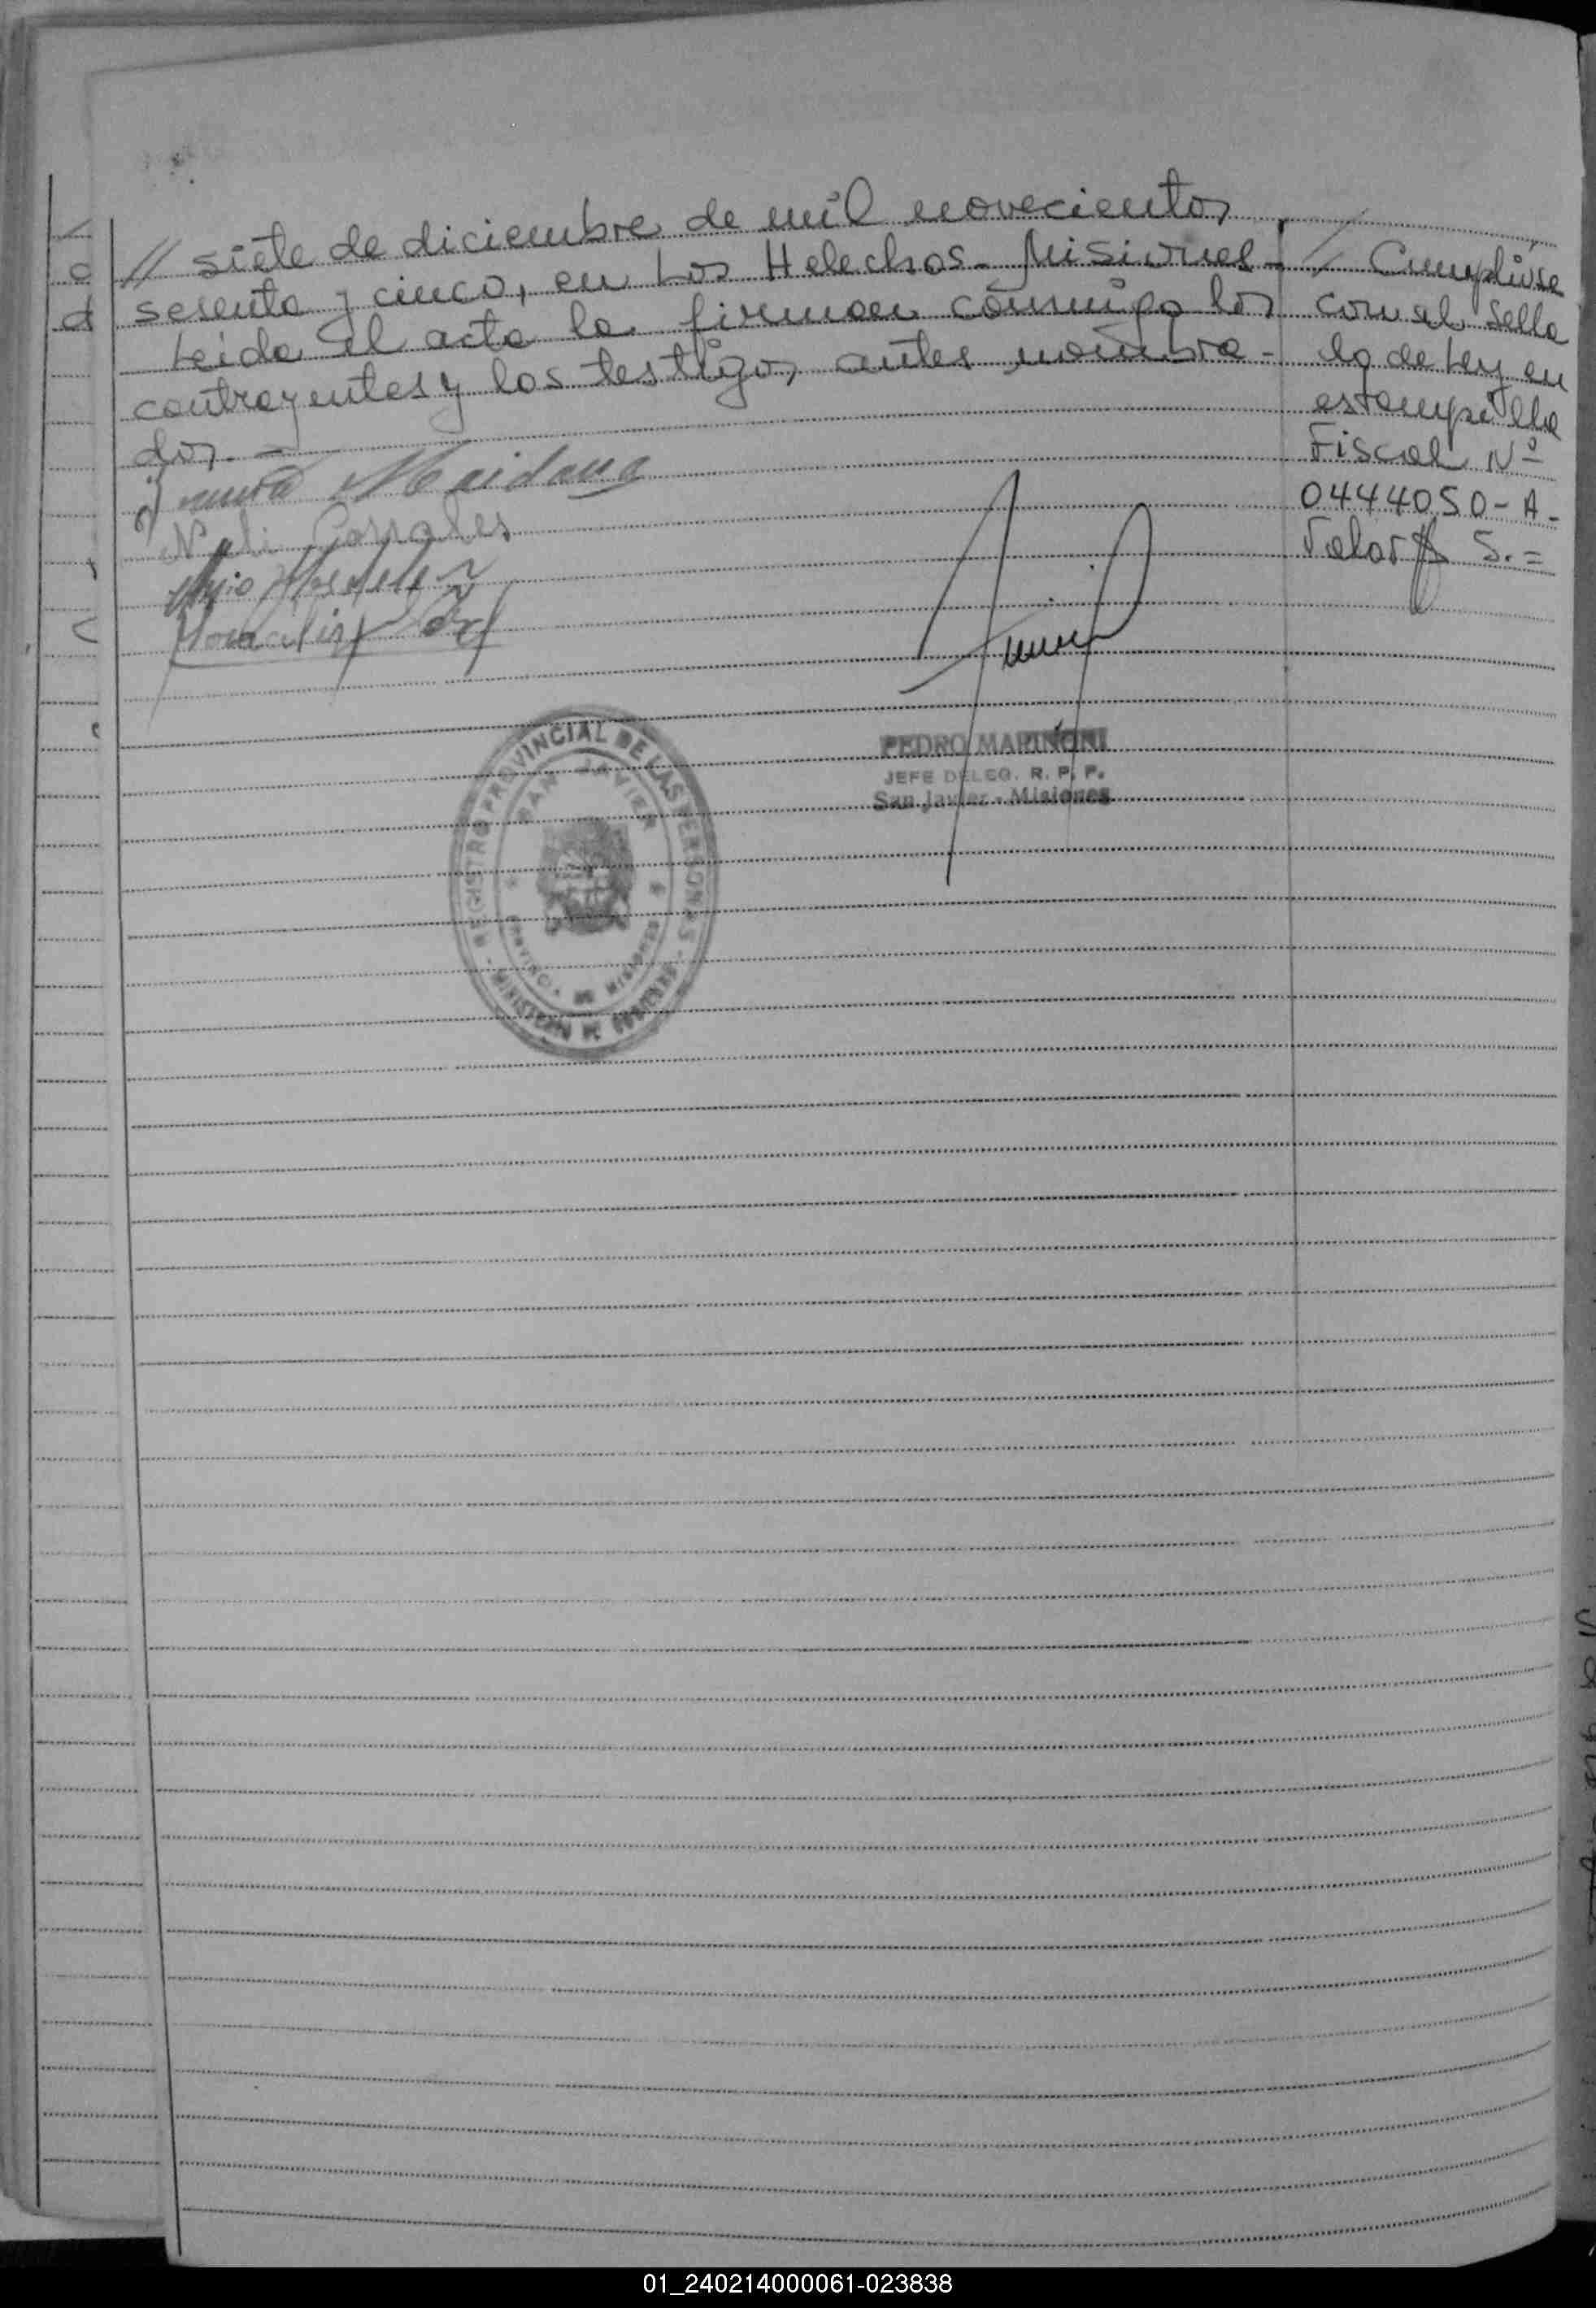 // siete de diciembre de mil novecientos
sesenta y cinco, en Los Helechos - Misiones -
Leida el acta la firman conmigo los
contrayentes y los testigos antes nombra-
dos. -
/ Cumplióse
con el Sella
do de Ley en
estampilla
Fiscal Nº
0444050 - A -
Valor $ 5. =
Maidana
Neli Corrales
PEDRO MARIÑONI
JEFE DELEG. R. P. P.
San Javier - Misiones
REGISTRO PROVINCIAL DE LAS PERSONAS - MINISTERIO DE GOBIERNO -
SAN JAVIER
PROVINCIA DE MISIONES
01_240214000061-023838